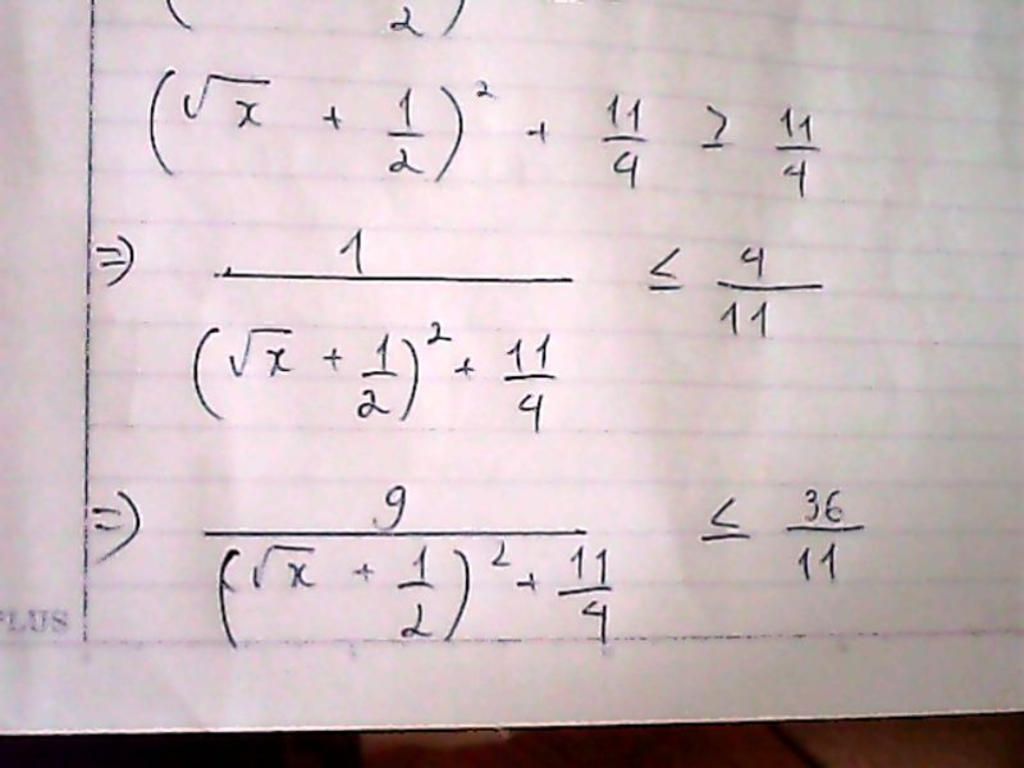 ( 2 )
(√x + 1/2)² + 11/4 ≥ 11/4
=> 1/((√x + 1/2)² + 11/4) ≤ 4/11
=> 9/((√x + 1/2)² + 11/4) ≤ 36/11
PLUS